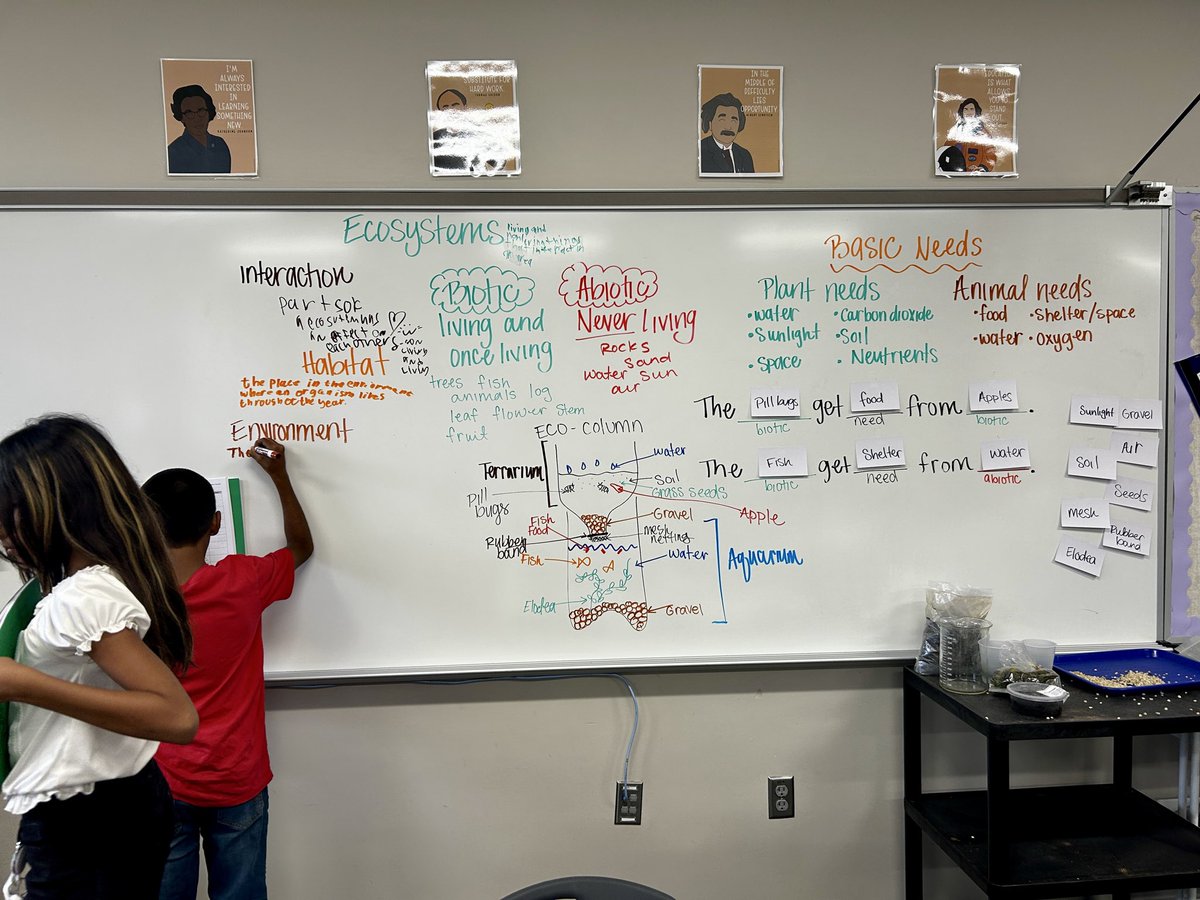 I'M
ALWAYS
INTERESTED
IN
LEARNING
SOMETHING
NEW
KATHERINE JOHNSON
SUBSTITUTE FOR
HARD WORK
IN THE
MIDDLE OF
DIFFICULTY
LIES
OPPORTUNITY
ALBERT EINSTEIN
IS WHAT
ALLOWS
YOU TO
STAND
OUT
Ecosystems
living and
area
Interaction
parts of
ecosystems
an effect on
each others
living
and
living
Habitat
the place in the environment
where an organism lives
throughout the year.
Environment
The
Biotic
living and
once living
trees fish
animals log
leaf flower stem
fruit
Abiotic
Never living
Rocks
Sand
water sun
air
ECO-COLUMN
Terrarium
Pill
bugs
water
Soil
Grass seeds
Apple
Gravel
Fish
food
Rubber
band
mesh
netting
Fish
water
Aquarium
Elodea
Gravel
Basic Needs
Plant needs
•water •Carbon dioxide
•Sunlight •Soil
•space • Neutrients
Animal needs
•food •shelter/space
•water •oxygen
The Pill bugs get food from Apples.
biotic need biotic
The Fish get Shelter from water.
biotic need abiotic
Sunlight Gravel
Soil Air
Seeds
mesh
Rubber
band
Elodea